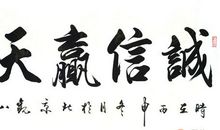 誠信贏天
時在丙申冬月於北京